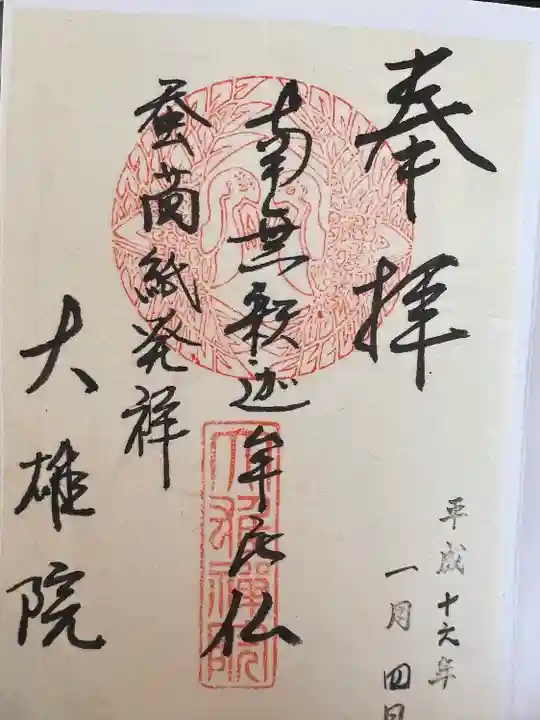 奉拝
平成十六年
一月四日
南無釈迦牟尼仏
蚕茵紙発祥
大雄院
大雄禅院